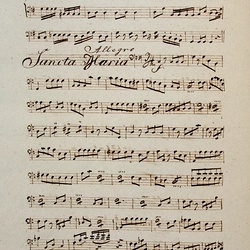 Allegro
Sancta Maria